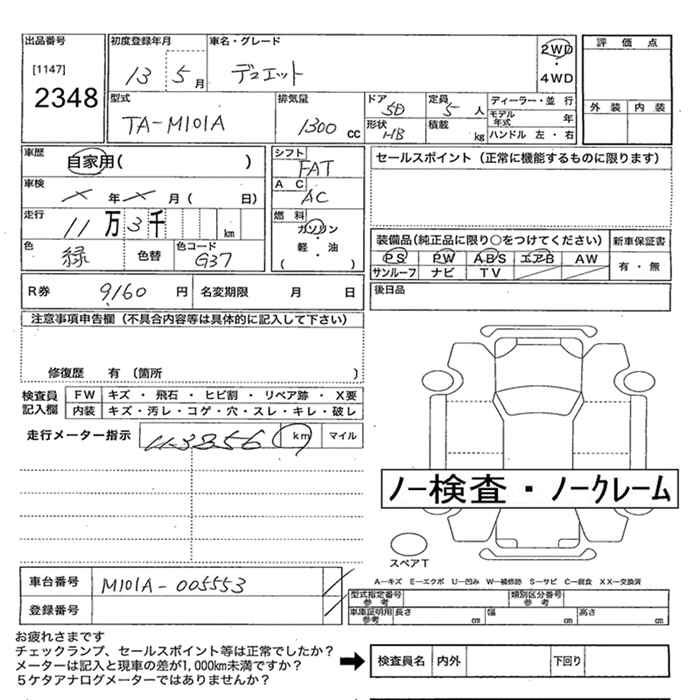 出品番号 初度登録年月 車名・グレード 評価点
[1147] 13 5月 デュエット 2WD・4WD
2348
型式 排気量 ドア 5D 定員 5人 ディーラー・並行
外装 内装
TA-M101A 1300cc 形状 HB 積載 kg モデル年式 年
ハンドル 左・右
車歴 自家用( ) シフト FAT セールスポイント(正常に機能するものに限ります)
車検 ×年×月( 日) AC AC
走行 11万3千 km 燃料 ガソリン・軽・油( )
色 緑 色替 色コード G37
装備品(純正品に限り○をつけてください) 新車保証書
PS PW ABS エアB AW 有・無
サンルーフ ナビ TV
R券 9,160円 名変期限 月 日 後日品
注意事項申告欄(不具合内容等は具体的に記入して下さい)
修復歴 有(箇所 )
検査員記入欄 FW キズ・飛石・ヒビ割・リペア跡・X要
内装 キズ・汚レ・コゲ・穴・スレ・キレ・破レ
走行メーター指示 113856 km マイル
ノー検査・ノークレーム
スペアT
A―キズ E―エクボ U―凹み W―補修跡 S―サビ C―腐食 XX―交換済
車台番号 M101A-005553
登録番号
型式指定番号 参考 類別区分番号 参考
車庫証明用 参考 長さ cm 幅 cm 高さ cm
お疲れさまです
チェックランプ、セールスポイント等は正常でしたか?
メーターは記入と現車の差が1,000km未満ですか?
5ケタアナログメーターではありませんか?
検査員名 内外 下回り